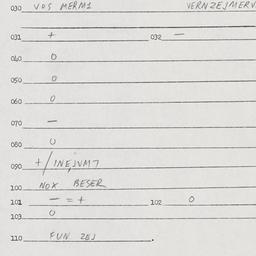 030 VOS MERM1 VERNZEJMERV
031 + 032 —
040 0
050 0
060 0
070 —
080 0
090 +/INEJVM7
100 NOX BESER
101 — = + 102 0
103 0
110 FUN ZEJ.